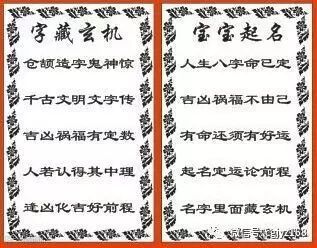 字藏玄机
仓颉造字鬼神惊
千古文明文字传
吉凶祸福有定数
人若认得其中理
逢凶化吉好前程
宝宝起名
人生八字命已定
吉凶祸福不由己
有命还须有好运
起名定运论前程
名字里面藏玄机